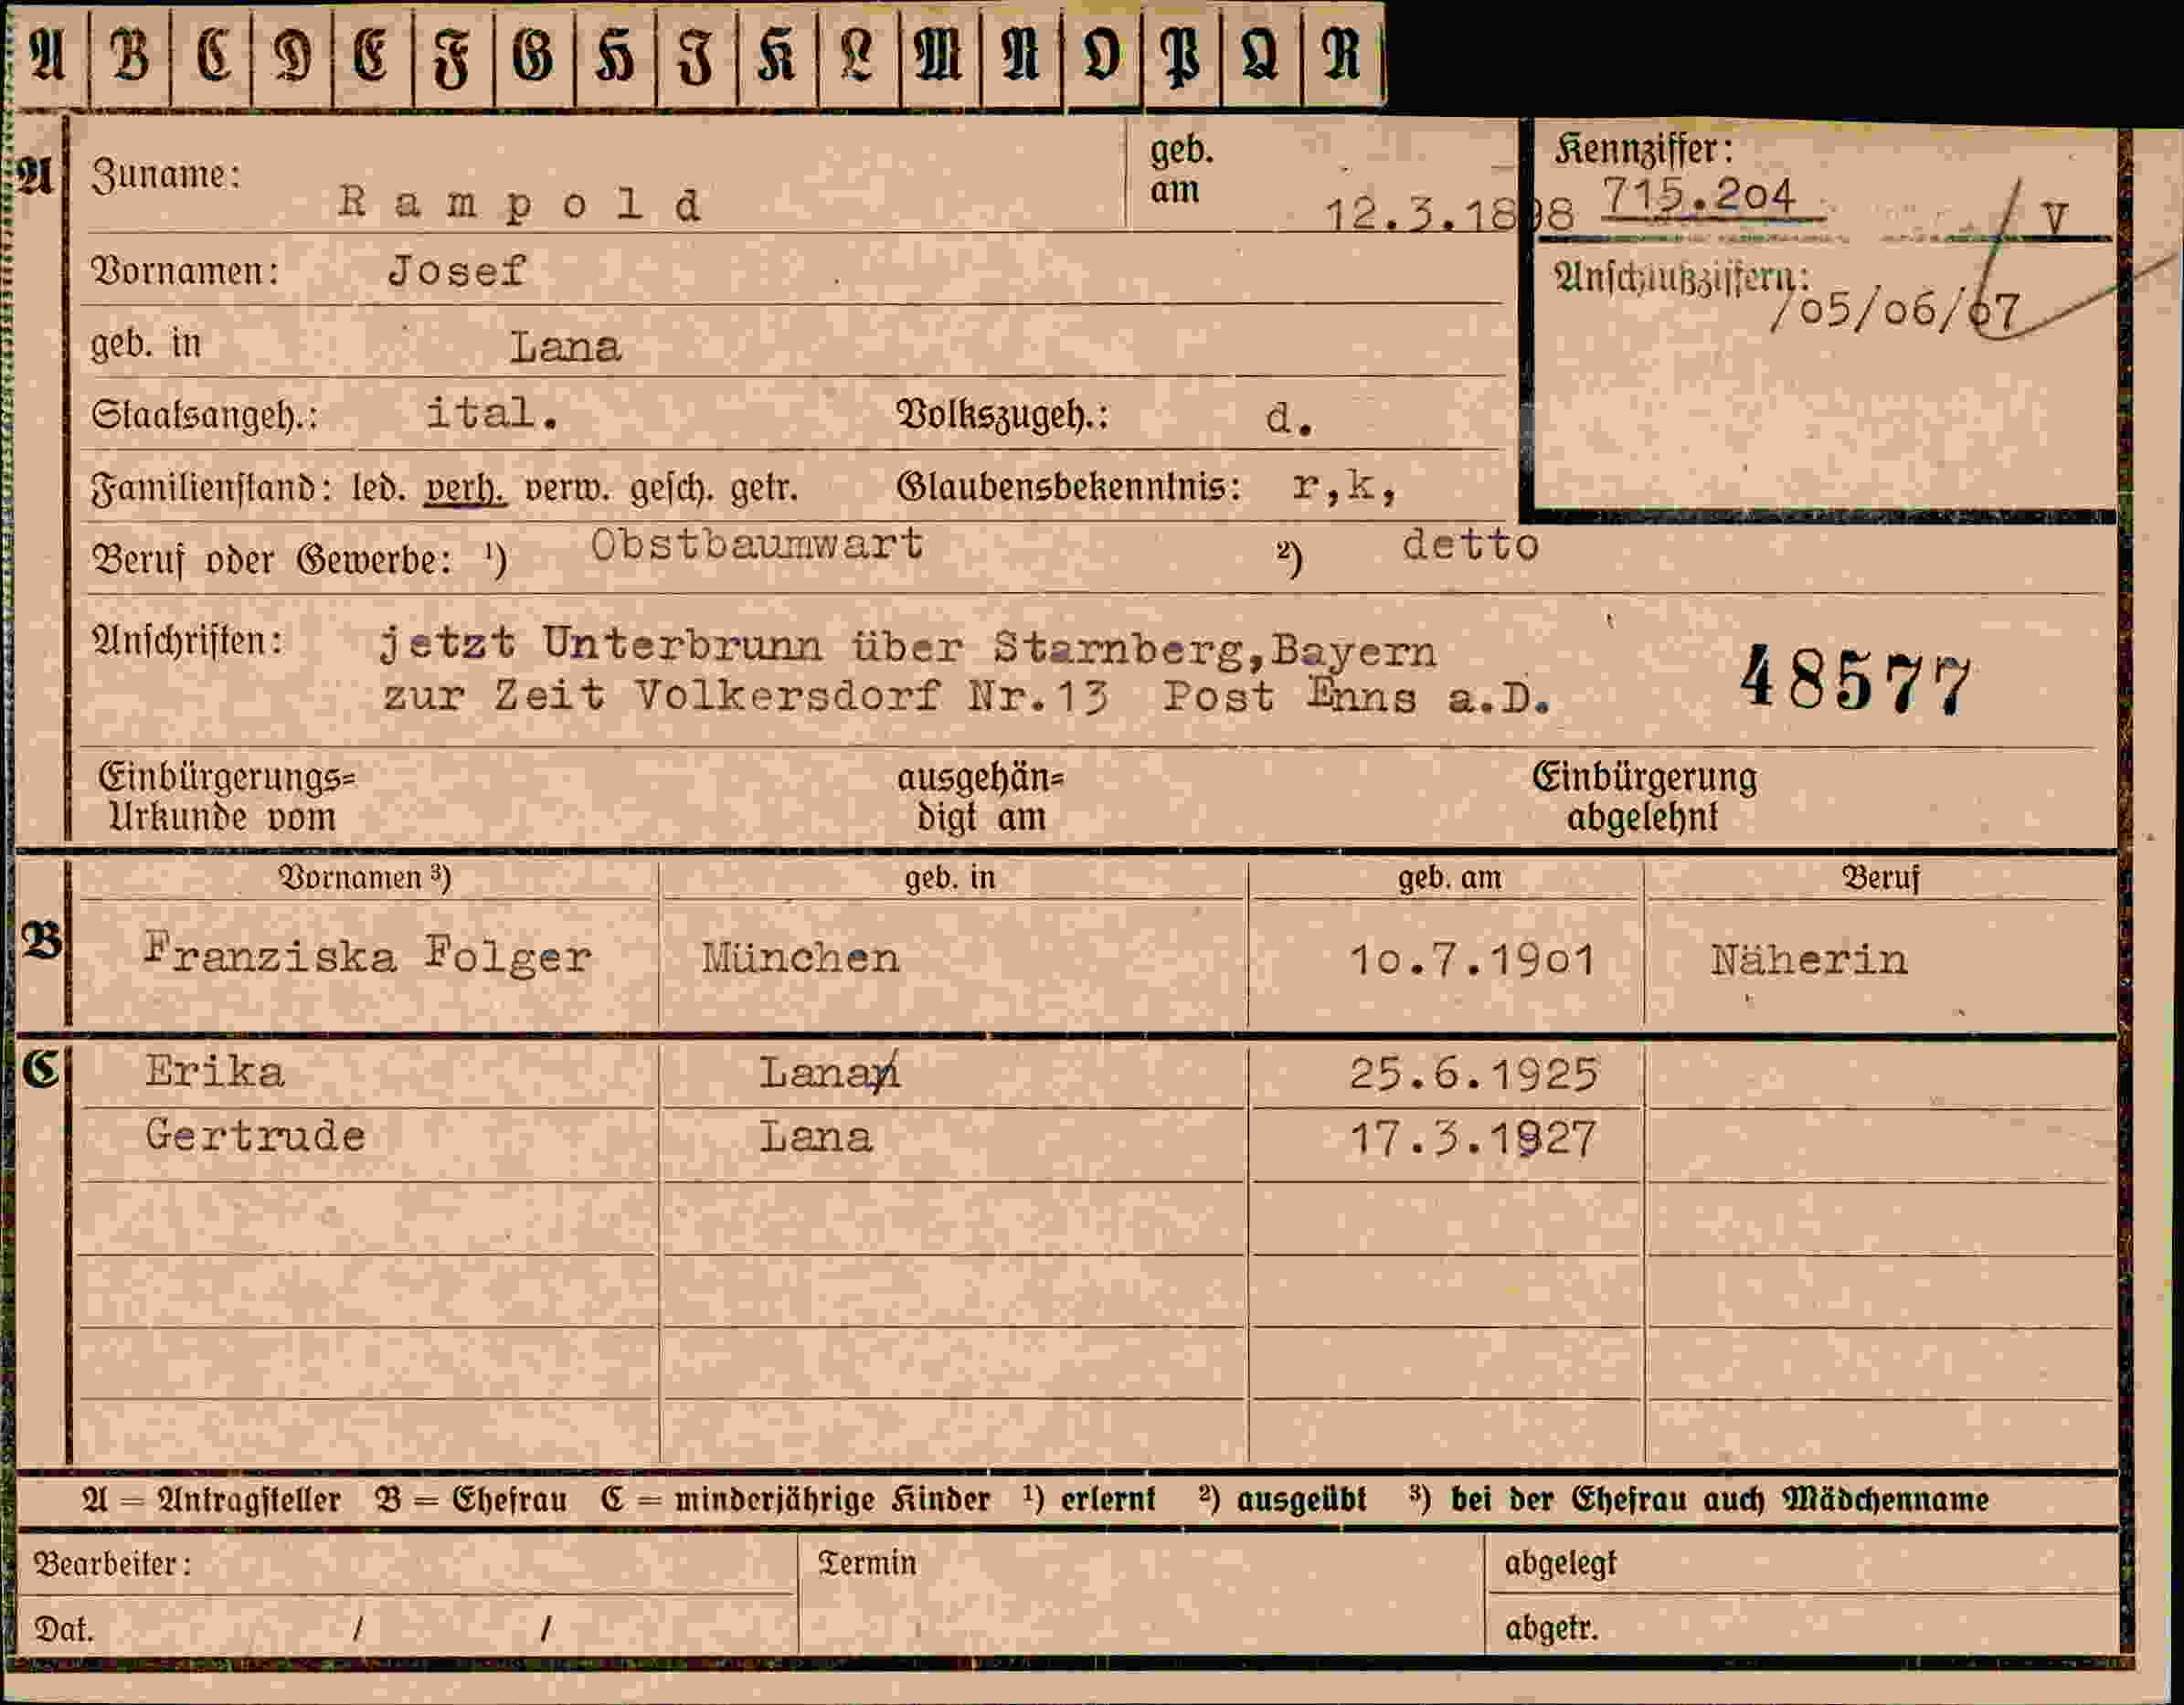 A B C D E F G H I K L M N O P Q R
A Zuname: Rampold geb. am 12.3.1898
Kennziffer: 715.2o4 / V
Vornamen: Josef
Anschlußziffern: /o5/o6/07
geb. in Lana
Staatsangeh.: ital. Volkszugeh.: d.
Familienstand: led. verh. verw. gesch. getr. Glaubensbekenntnis: r,k,
Beruf oder Gewerbe: ¹) Obstbaumwart ²) detto
Anschriften: jetzt Unterbrunn über Starnberg,Bayern
zur Zeit Volkersdorf Nr.13 Post Enns a.D. 48577
Einbürgerungs= ausgehän= Einbürgerung
Urkunde vom digt am abgelehnt
Vornamen ³) geb. in geb. am Beruf
B Franziska Folger München 1o.7.19o1 Näherin
C Erika Lana 25.6.1925
Gertrude Lana 17.3.1927
A = Antragsteller B = Ehefrau C = minderjährige Kinder ¹) erlernt ²) ausgeübt ³) bei der Ehefrau auch Mädchenname
Bearbeiter: Termin abgelegt
Dat. / / abgetr.